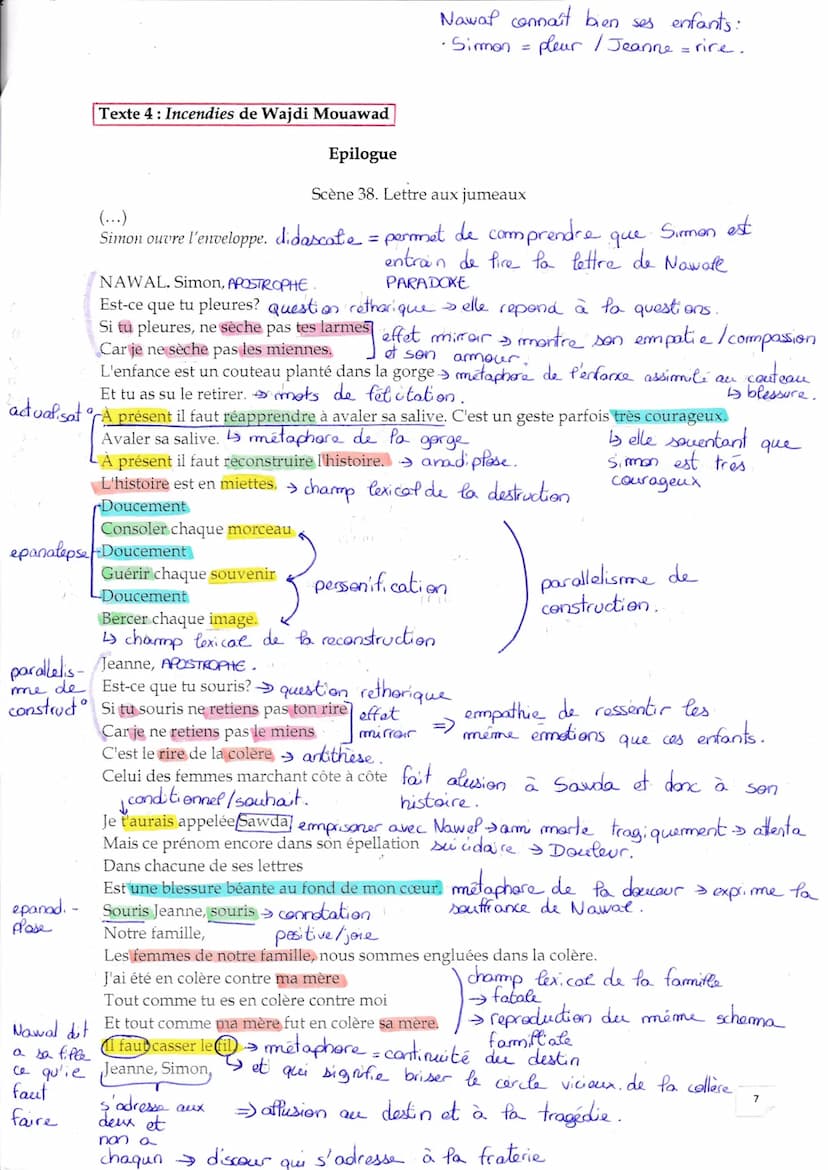 Nawaf connaît bien ses enfants :
· Simon = pleur / Jeanne = rire.
Texte 4 : Incendies de Wajdi Mouawad
Epilogue
Scène 38. Lettre aux jumeaux
(…)
Simon ouvre l'enveloppe. didascale = permet de comprendre que Simon est
entrain de lire la lettre de Nawale
NAWAL. Simon, APOSTROPHE. PARADOXE
Est-ce que tu pleures? question rethorique → elle repond à la questions.
Si tu pleures, ne sèche pas tes larmes
Car je ne sèche pas les miennes.
effet mirroir → montre son empatie / compassion
et son amour.
L'enfance est un couteau planté dans la gorge → métaphore de l'enfance assimilé au couteau
↳ blessure.
Et tu as su le retirer. → mots de félicitation.
actualisat°
À présent il faut réapprendre à avaler sa salive. C'est un geste parfois très courageux.
Avaler sa salive. ↳ métaphore de la gorge
↳ elle souentant que
Simon est très
courageux
À présent il faut reconstruire l'histoire. → anadiplose.
L'histoire est en miettes. → champ lexical de la destruction
Doucement
Consoler chaque morceau
epanalepse
Doucement
Guérir chaque souvenir
personification
parallelisme de
construction.
Doucement
Bercer chaque image.
↳ champ lexical de la reconstruction
parallelis-
me de
construct°
Jeanne, APOSTROPHE.
Est-ce que tu souris? → question rethorique
Si tu souris ne retiens pas ton rire
Car je ne retiens pas le miens
effet
mirroir
⇒ empathie de ressentir les
même émotions que ces enfants.
C'est le rire de la colère → antithèse.
Celui des femmes marchant côte à côte fait alusion à Sawda et donc à son
histoire.
conditionnel/souhait.
Je t'aurais appelée Sawda emprisoner avec Nawel → ami morte tragiquement → attenta
suicidaire → Douleur.
Mais ce prénom encore dans son épellation
Dans chacune de ses lettres
Est une blessure béante au fond de mon cœur. métaphore de la douceur → exprime la
souffrance de Nawal.
epanad.-
plose
Souris Jeanne, souris → connotation
positive/joie
Notre famille,
Les femmes de notre famille, nous sommes engluées dans la colère.
J'ai été en colère contre ma mère
Tout comme tu es en colère contre moi
Et tout comme ma mère fut en colère sa mère.
champ lexical de la famille
→ fatale
→ reproduction du même schema
familiale
Nawal dit
a sa fille
ce qu'ie
faut
faire
Il faut casser le fil → métaphore = continuité du destin
↳ et qui signifie briser le cercle vicieux de la collère
Jeanne, Simon,
s'adresse aux
deux et
non a
chaqun → discour qui s'adresse à la fraterie
⇒ allusion au destin et à la tragédie.
7